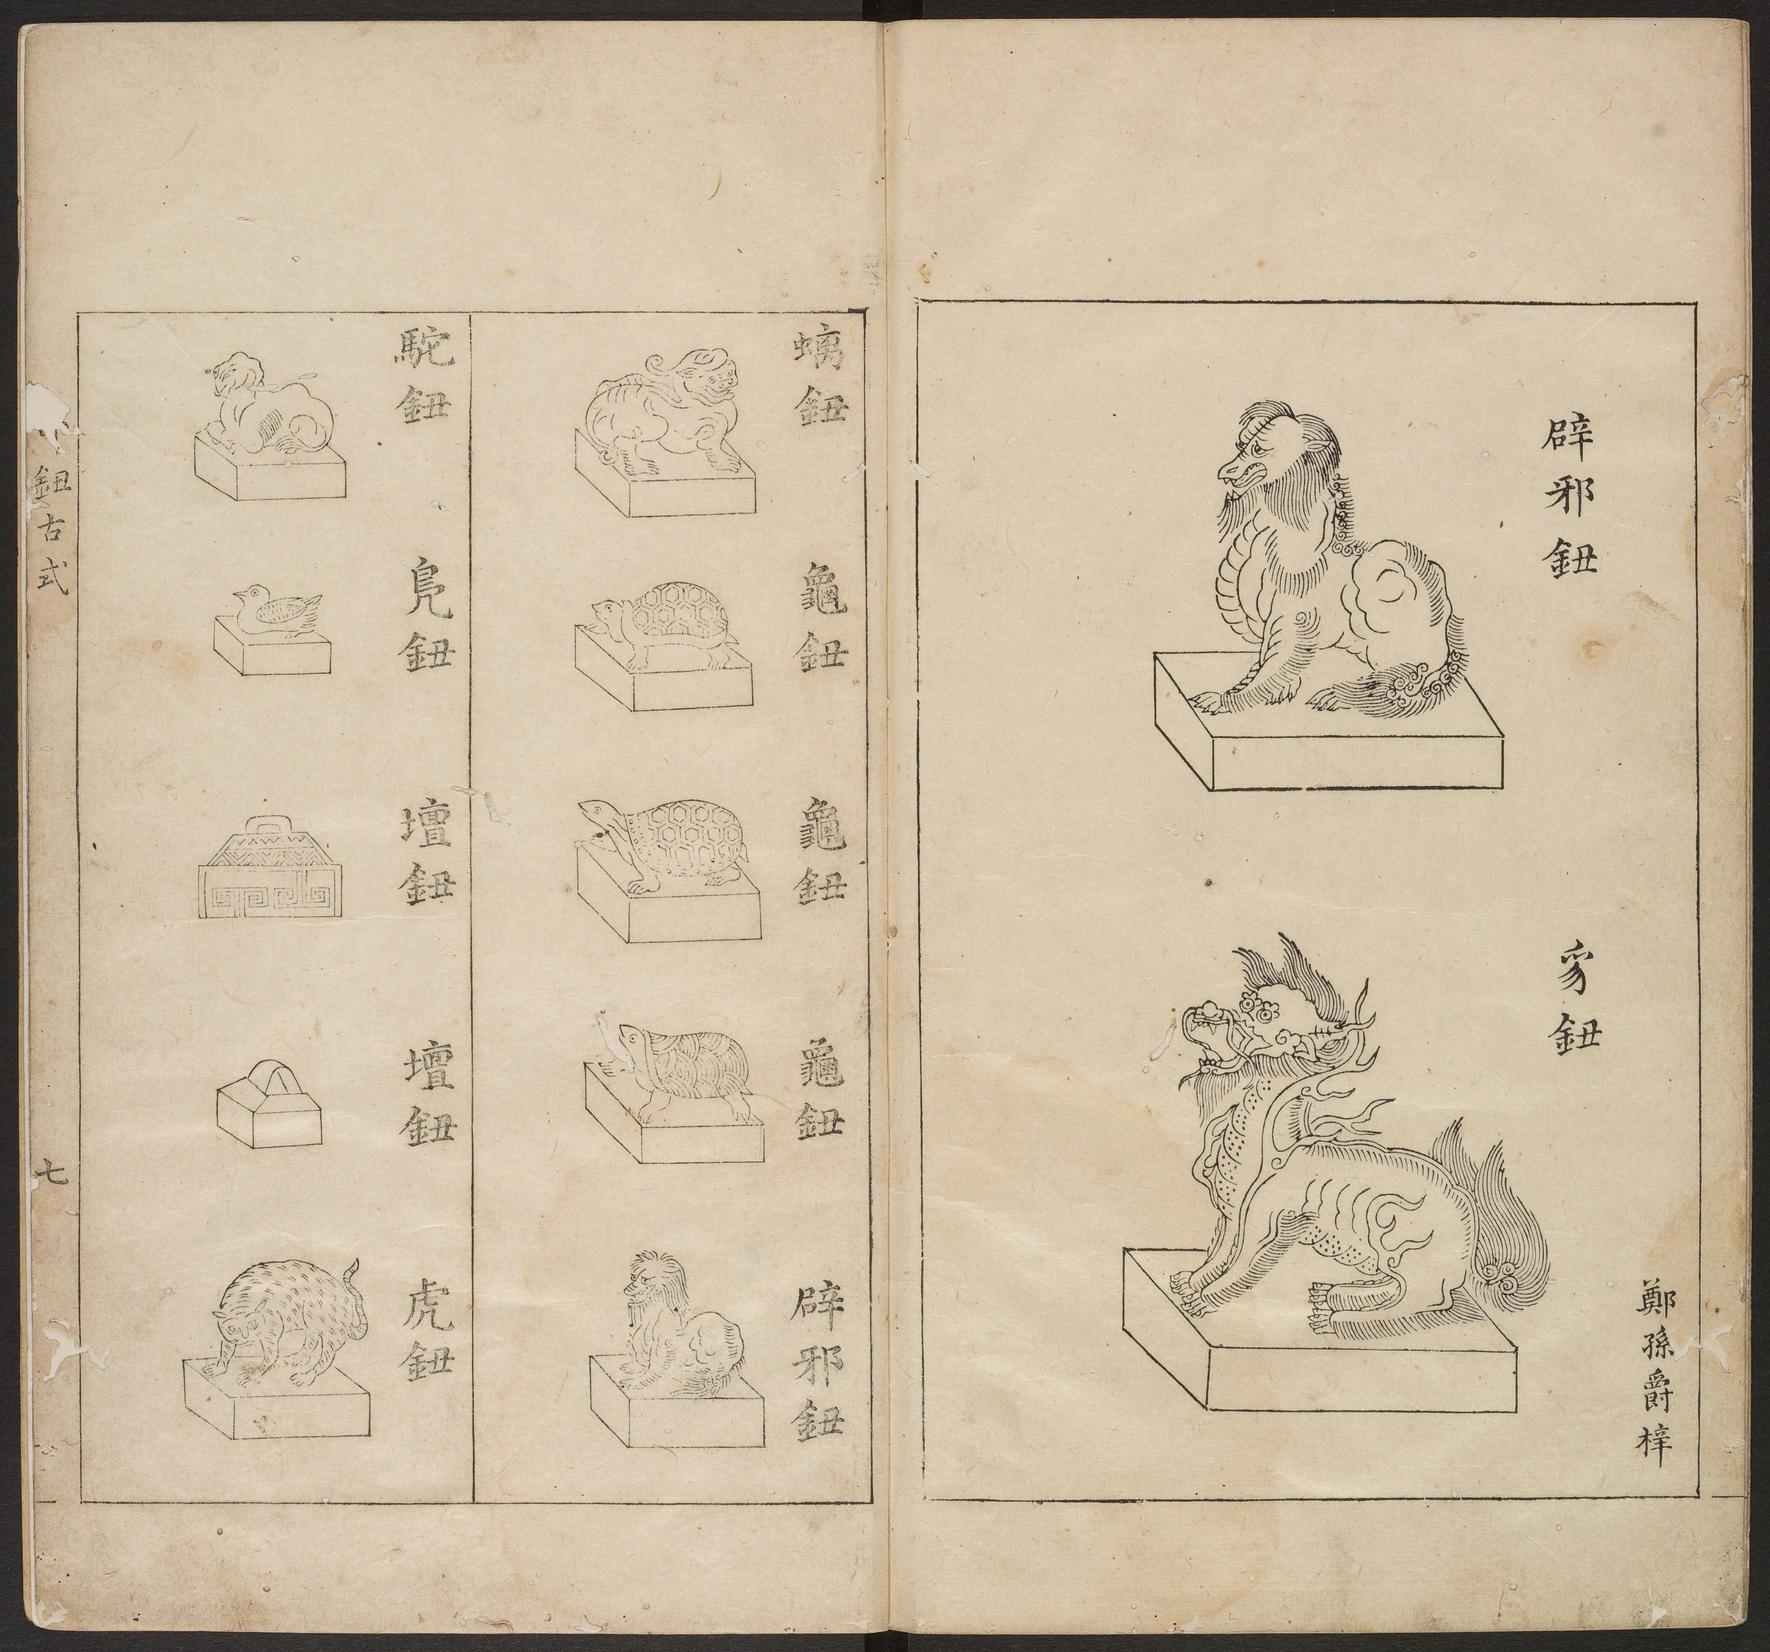 辟邪鈕
豸鈕
鄭孫爵梓
螭鈕
龜鈕
龜鈕
龜鈕
辟邪鈕
駝鈕
鳧鈕
壇鈕
壇鈕
虎鈕
鈕古式
七